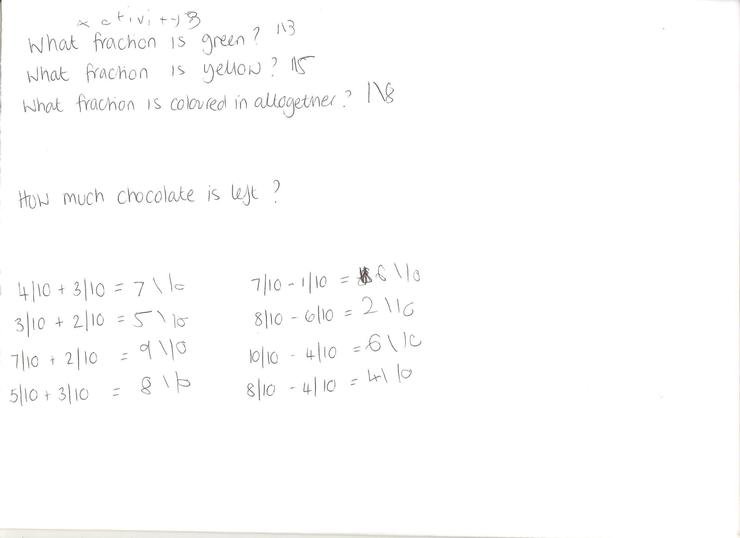 activity 3
What fraction is green? 1\3
What fraction is yellow? 1\5
What fraction is coloured in altogether? 1\8
How much chocolate is left?
4/10 + 3/10 = 7\10 7/10 - 1/10 = 6\10
3/10 + 2/10 = 5\10 8/10 - 6/10 = 2\10
7/10 + 2/10 = 9\10 10/10 - 4/10 = 6\10
5/10 + 3/10 = 8\10 8/10 - 4/10 = 4\10